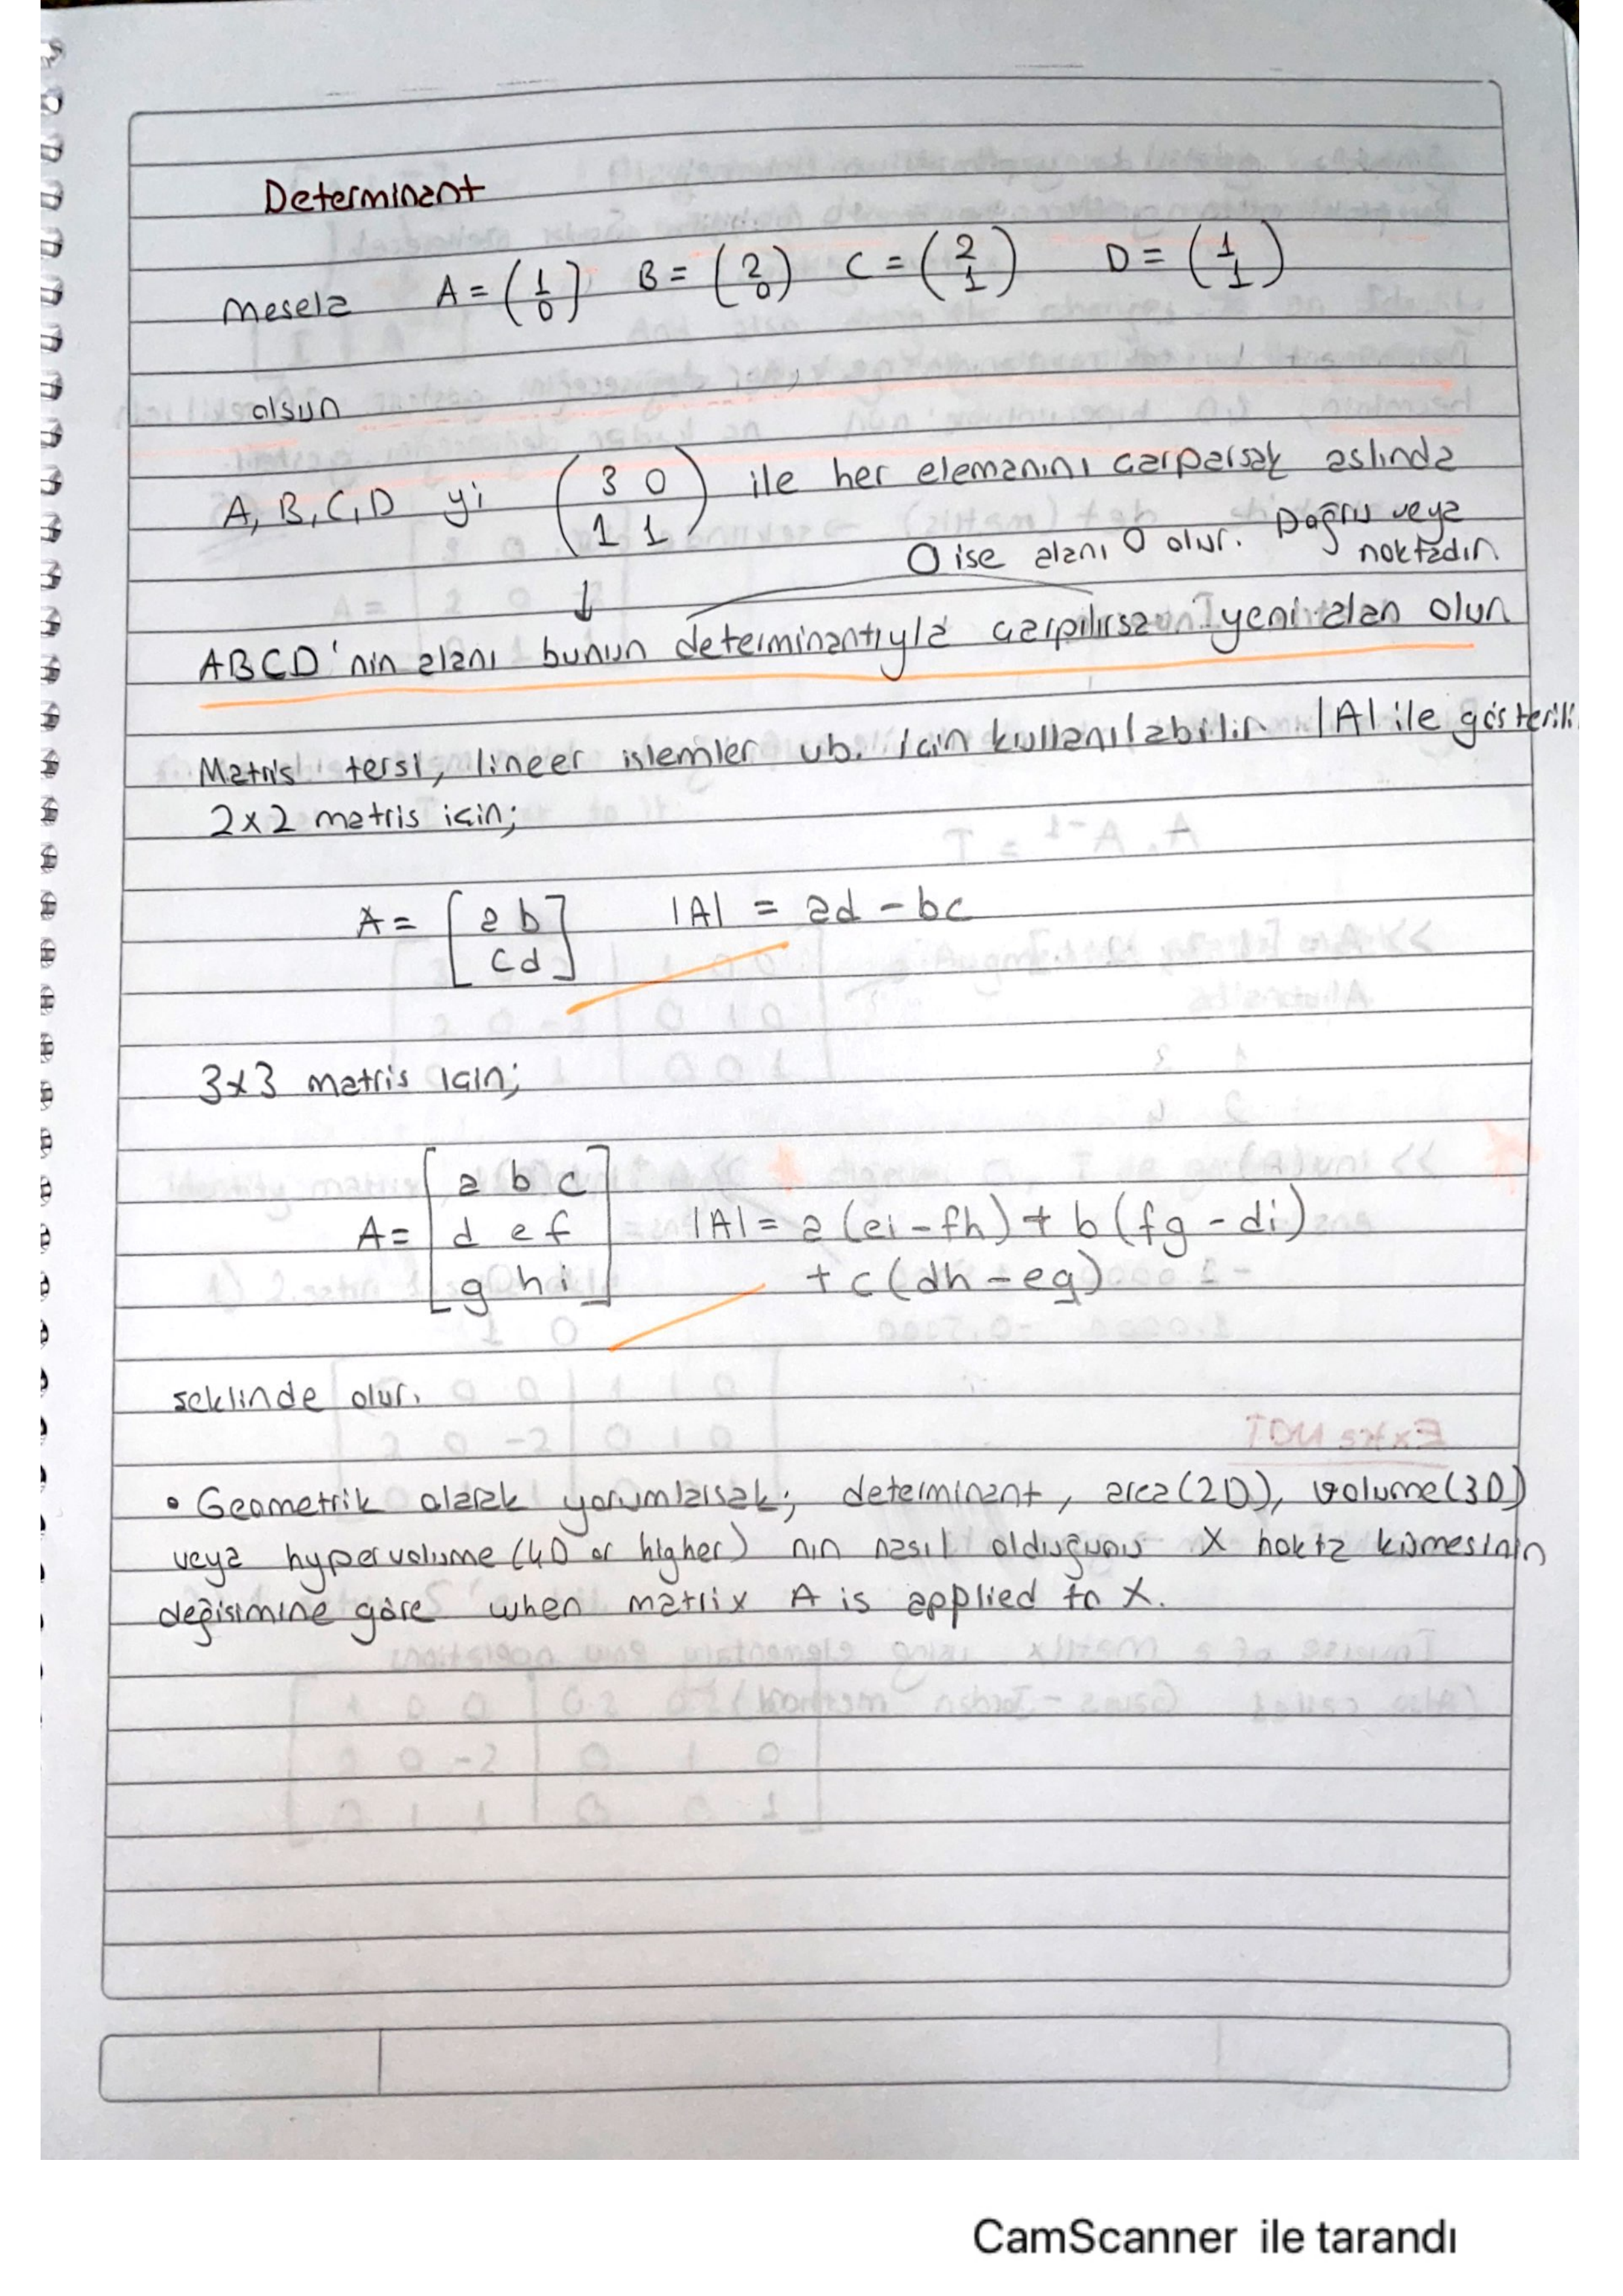 Determinant
Mesela A = (1 0) B = (2 0) C = (2 1) D = (1 1)
olsun
A, B, C, D yi (3 0
1 1) ile her elemanını çarparsak aslında
0 ise alanı 0 olur. Doğru veya
noktadır.
↓
ABCD'nin alanı bunun determinantıyla çarpılırsa yeni alan olur
Matris tersi, lineer islemler vb. icin kullanılabilir. |A| ile gösterili
2x2 matris icin;
A = [a b
c d] |A| = ad - bc
3x3 matris icin;
A = [a b c
d e f
g h i] |A| = a (ei - fh) + b (fg - di)
+ c (dh - eg)
seklinde olur.
• Geometrik olarak yorumlarsak; determinant, area (2D), volume (3D)
veya hypervolume (4D or higher) nın nasıl olduğunu X nokta kümesinin
değisimine göre when matrix A is applied to X.
CamScanner ile tarandı